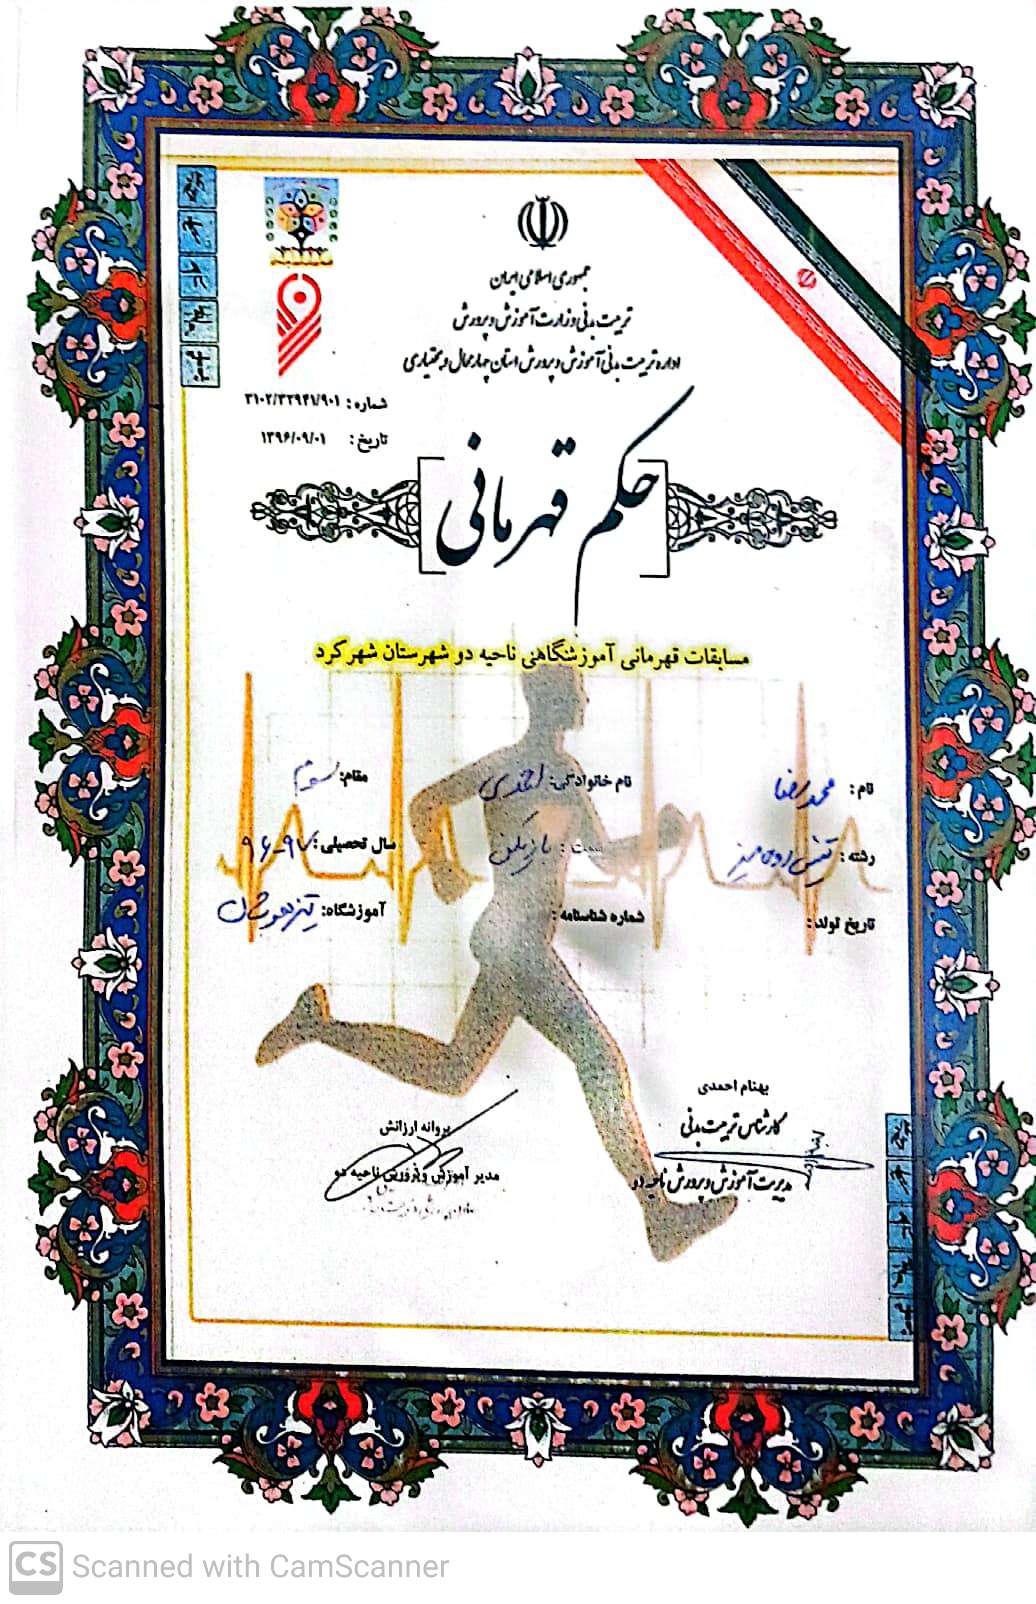 جمهوری اسلامی ایران
تربیت بدنی وزارت آموزش و پرورش
اداره تربیت بدنی آموزش و پرورش استان چهارمحال و بختیاری
شماره : ۳۱۰۲/۳۲۹۴۱/۹۰۱
تاریخ : ۱۳۹۶/۰۹/۰۱
حکم قهرمانی
مسابقات قهرمانی آموزشگاهی ناحیه دو شهرستان شهرکرد
نام : محمدرضا نام خانوادگی: احمدی مقام: سوم
رشته : تنیس روی میز سمت : بازیکن سال تحصیلی: ۹۷-۹۶
تاریخ تولد : شماره شناسنامه : آموزشگاه: تیزهوشان
بهنام احمدی
کارشناس تربیت بدنی
مدیریت آموزش و پرورش ناحیه دو
پروانه ارزانش
مدیر آموزش و پرورش ناحیه دو
CS Scanned with CamScanner